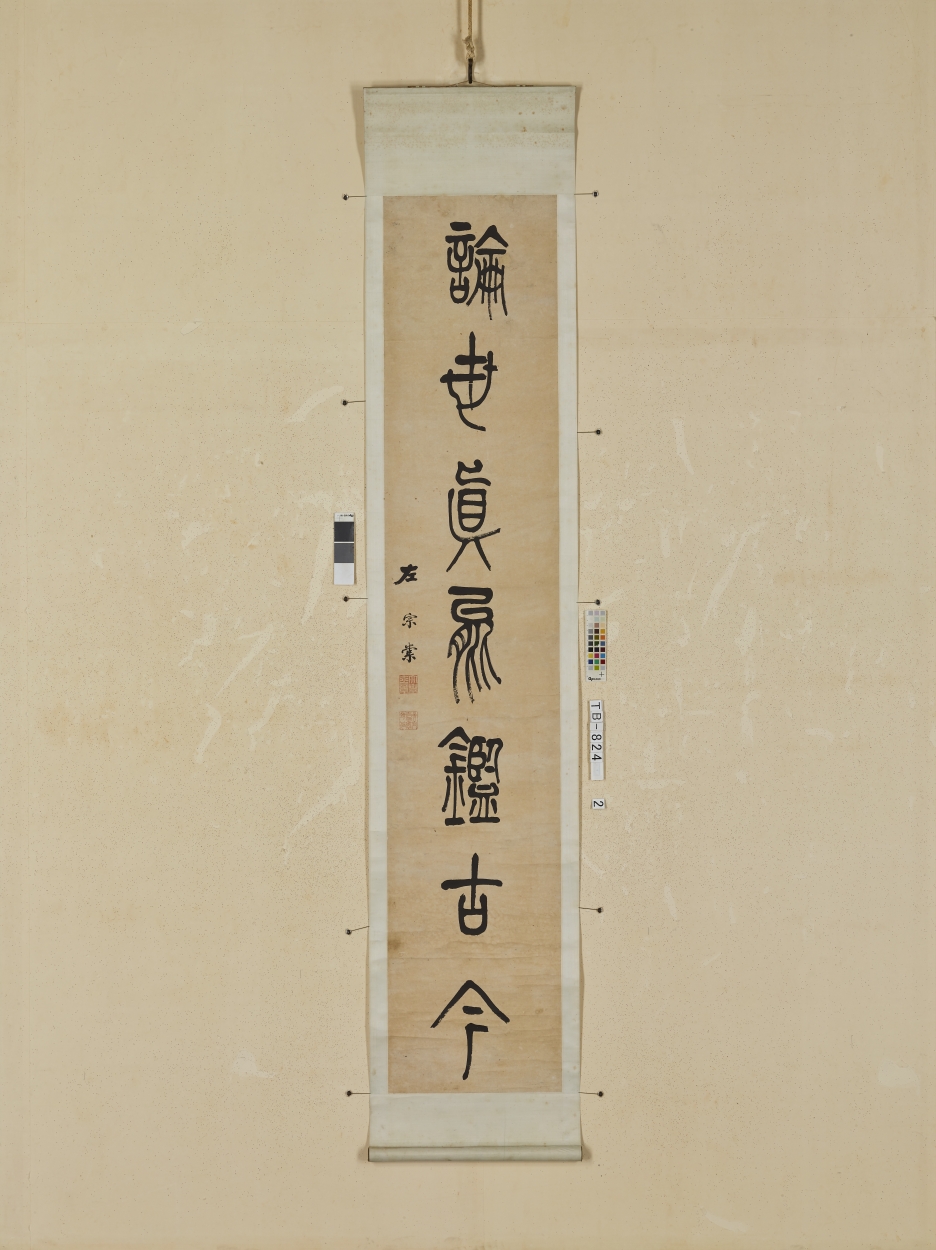 論世眞爲鑑古今
左宗棠
TB-824
2